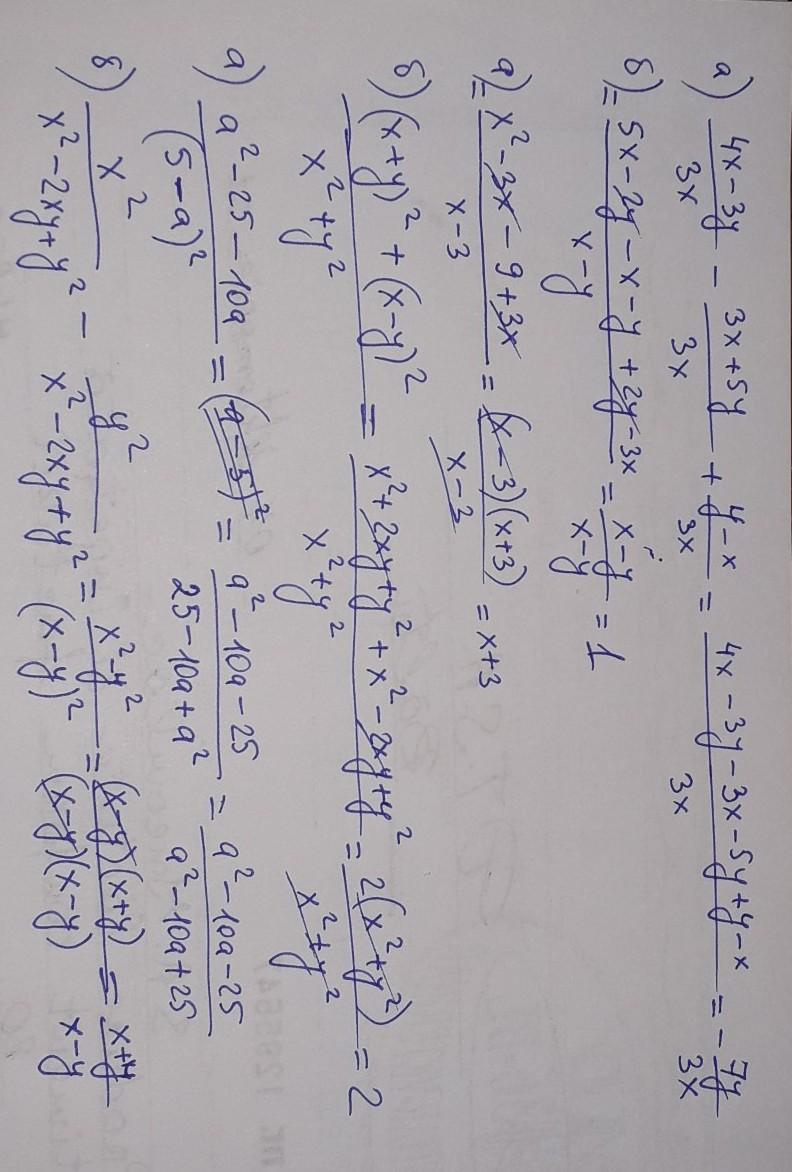 а) (4x-3y)/3x - (3x+5y)/3x + (y-x)/3x = (4x-3y-3x-5y+y-x)/3x = -7y/3x
б) = (5x-2y-x-y+2y-3x)/(x-y) = (x-y)/(x-y) = 1
а) = (x²-3x-9+3x)/(x-3) = (x-3)(x+3)/(x-3) = x+3
б) ((x+y)²+(x-y)²)/(x²+y²) = (x²+2xy+y²+x²-2xy+y²)/(x²+y²) = 2(x²+y²)/(x²+y²) = 2
а) (a²-25-10a)/(5-a)² = (a-5)² = (a²-10a-25)/(25-10a+a²) = (a²-10a-25)/(a²-10a+25)
б) x²/(x²-2xy+y²) - y²/(x²-2xy+y²) = (x²-y²)/(x-y)² = (x-y)(x+y)/(x-y)(x-y) = (x+y)/(x-y)